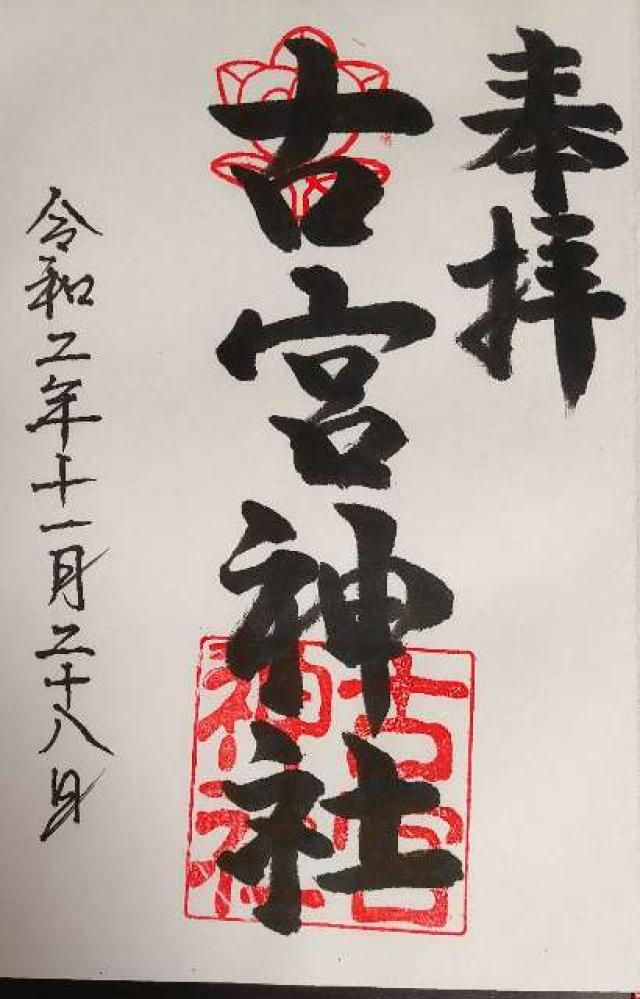 奉拝
古宮神社
古宮神社
令和二年十一月二十八日